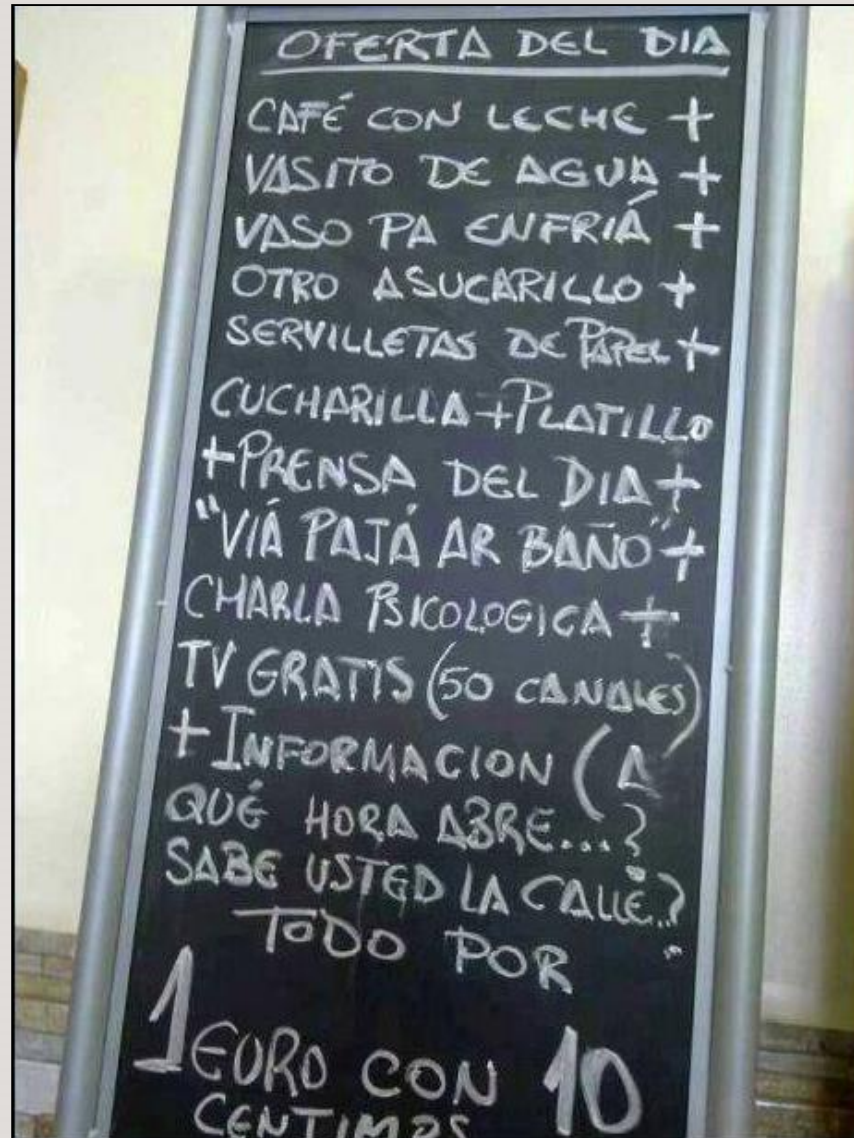 OFERTA DEL DIA
CAFÉ CON LECHE +
VASITO DE AGUA +
VASO PA ENFRIÁ +
OTRO ASUCARILLO +
SERVILLETAS DE PAPEL +
CUCHARILLA + PLATILLO
+ PRENSA DEL DIA +
"VIÁ PAJÁ AR BAÑO" +
CHARLA PSICOLOGICA +
TV GRATIS (50 CANALES)
+ INFORMACION (A
QUÉ HORA ABRE...?
SABE USTED LA CALLE..?
TODO POR
1 EURO CON 10
CENTIMOS